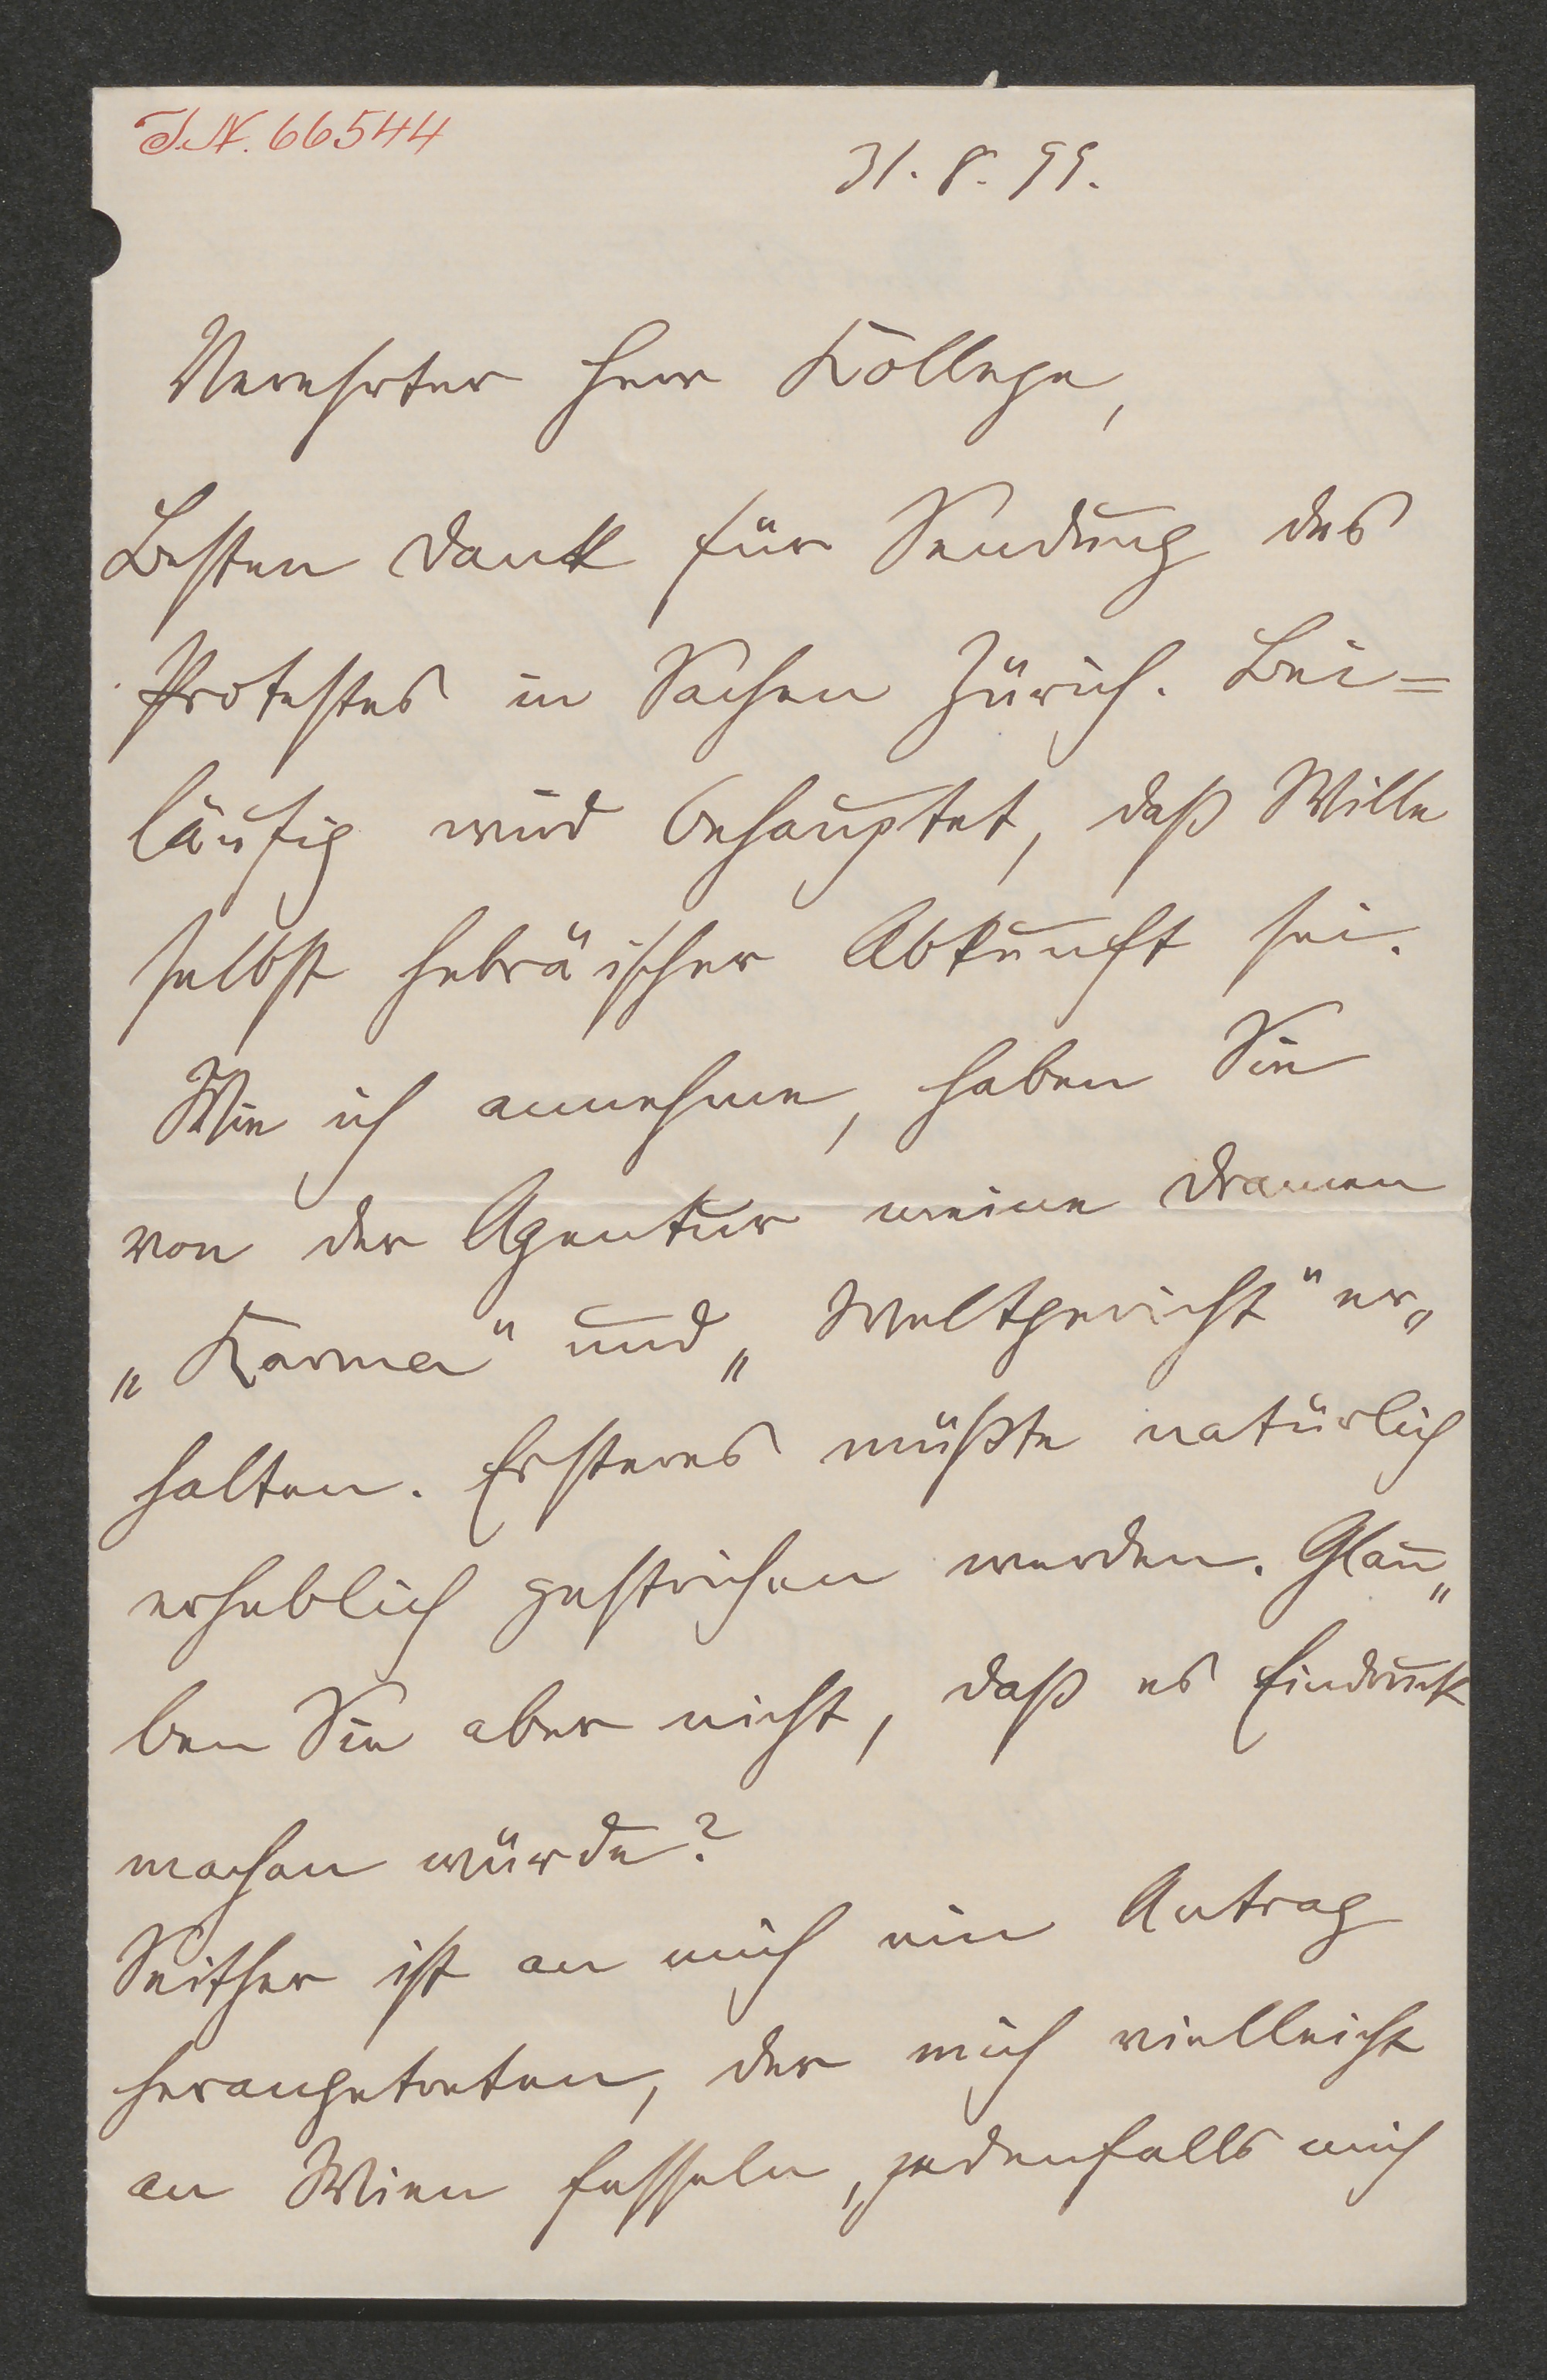 I.N. 66544
31. 8. 99.
Verehrter Herr Kollege,
Besten Dank für Sendung des
Protestes in Sachen Zürich. Bei=
läufig wird behauptet, daß Wille
selbst hebräischer Abkunft sei.
Wie ich annehme, haben Sie
von der Agentur meine Dramen
„Karma" und „Weltgericht" er„
halten. Ersteres müßte natürlich
erheblich gestrichen werden. Glau„
ben Sie aber nicht, daß es Eindruck
machen würde?
Seither ist an mich ein Antrag
herangetreten, der mich vielleicht
an Wien fesseln, jedenfalls mich